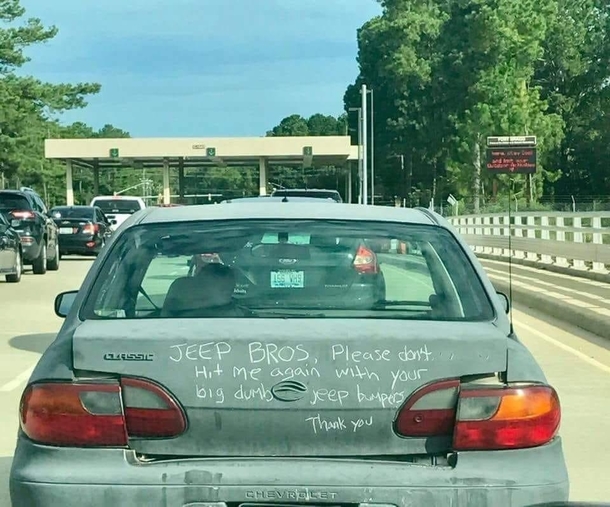 CLASSIC
JEEP BROS, Please don't
Hit me again with your
big dumb jeep bumpers
Thank you
CHEVROLET